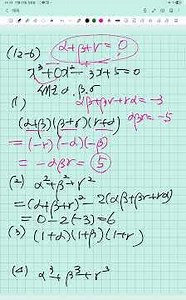 (12-6) α+β+γ=0
x³+0x²-3x+5=0
α, β, γ
(1) αβ+βγ+γα=-3
αβγ=-5
(α+β)(β+γ)(γ+α)
=(-γ)(-α)(-β)
=-αβγ=5
(2) α²+β²+γ²
=(α+β+γ)²-2(αβ+βγ+γα)
=0-2(-3)=6
(3) (1+α)(1+β)(1+γ)
(4) α³+β³+γ³